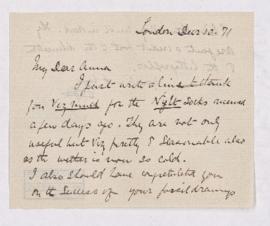 London Dec 10. 71
My Dear Anna
I just write a line to thank
you Very much for the Night Socks received
a few days ago. They are not only
useful but Very pretty & Seasonable also
as the weather is now so cold.
I also should have congratulated you
on the Success of your fossil drawings